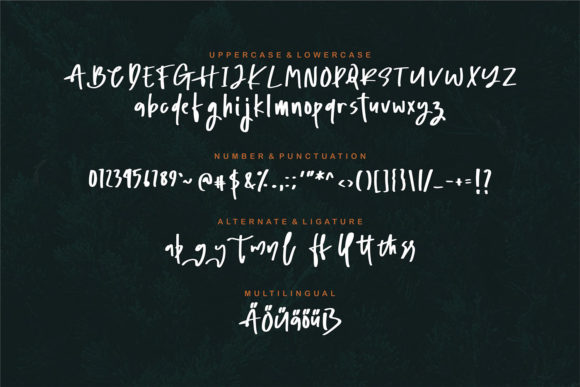 UPPERCASE & LOWERCASE
ABCDEFGHIJKLMNOPQRSTUVWXYZ
abcdefghijklmnopqrstuvwxyz
NUMBER & PUNCTUATION
0123456789`~@#$&%.,:;'"*^<>()[]{}\|/_-+=!?
ALTERNATE & LIGATURE
MULTILINGUAL
ÄÖÜäöüß